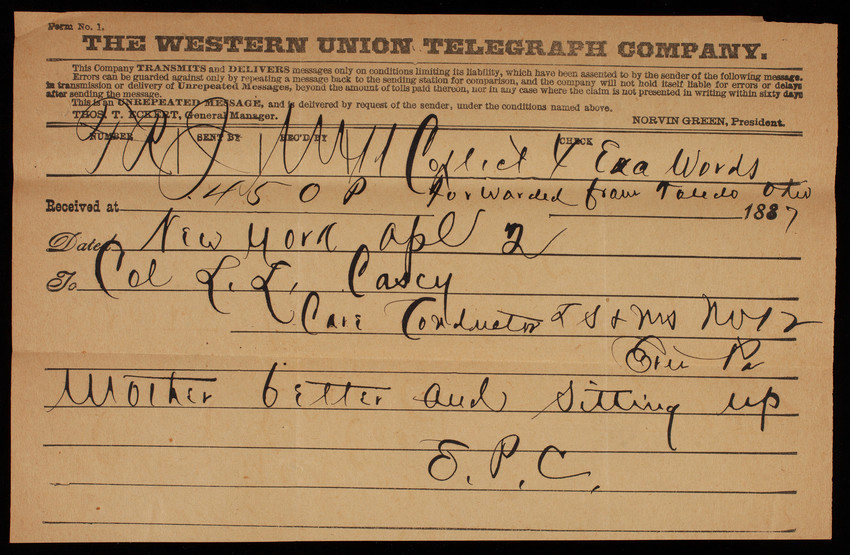 Form No. 1.
THE WESTERN UNION TELEGRAPH COMPANY.
This Company TRANSMITS and DELIVERS messages only on conditions limiting its liability, which have been assented to by the sender of the following message.
Errors can be guarded against only by repeating a message back to the sending station for comparison, and the company will not hold itself liable for errors or delays
in transmission or delivery of Unrepeated Messages, beyond the amount of tolls paid thereon, nor in any case where the claim is not presented in writing within sixty days
after sending the message.
This is an UNREPEATED MESSAGE, and is delivered by request of the sender, under the conditions named above.
THOS. T. ECKERT, General Manager. NORVIN GREEN, President.
NUMBER SENT BY REC'D BY CHECK
Collect Exa Words
450 P Forwarded from Toledo Ohio
Received at 1887
Dated New York Apl 2
To Col L. L. Casey
Care Conductor L S & M S No 12
Erie Pa
Mother better and sitting up
E. P. C.